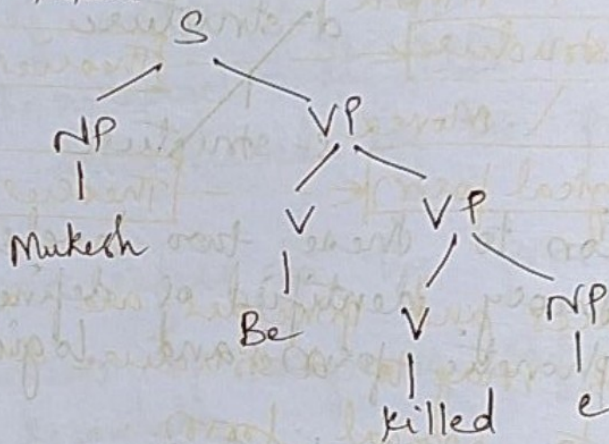 S
NP VP
Mukesh V VP
Be V NP
killed e